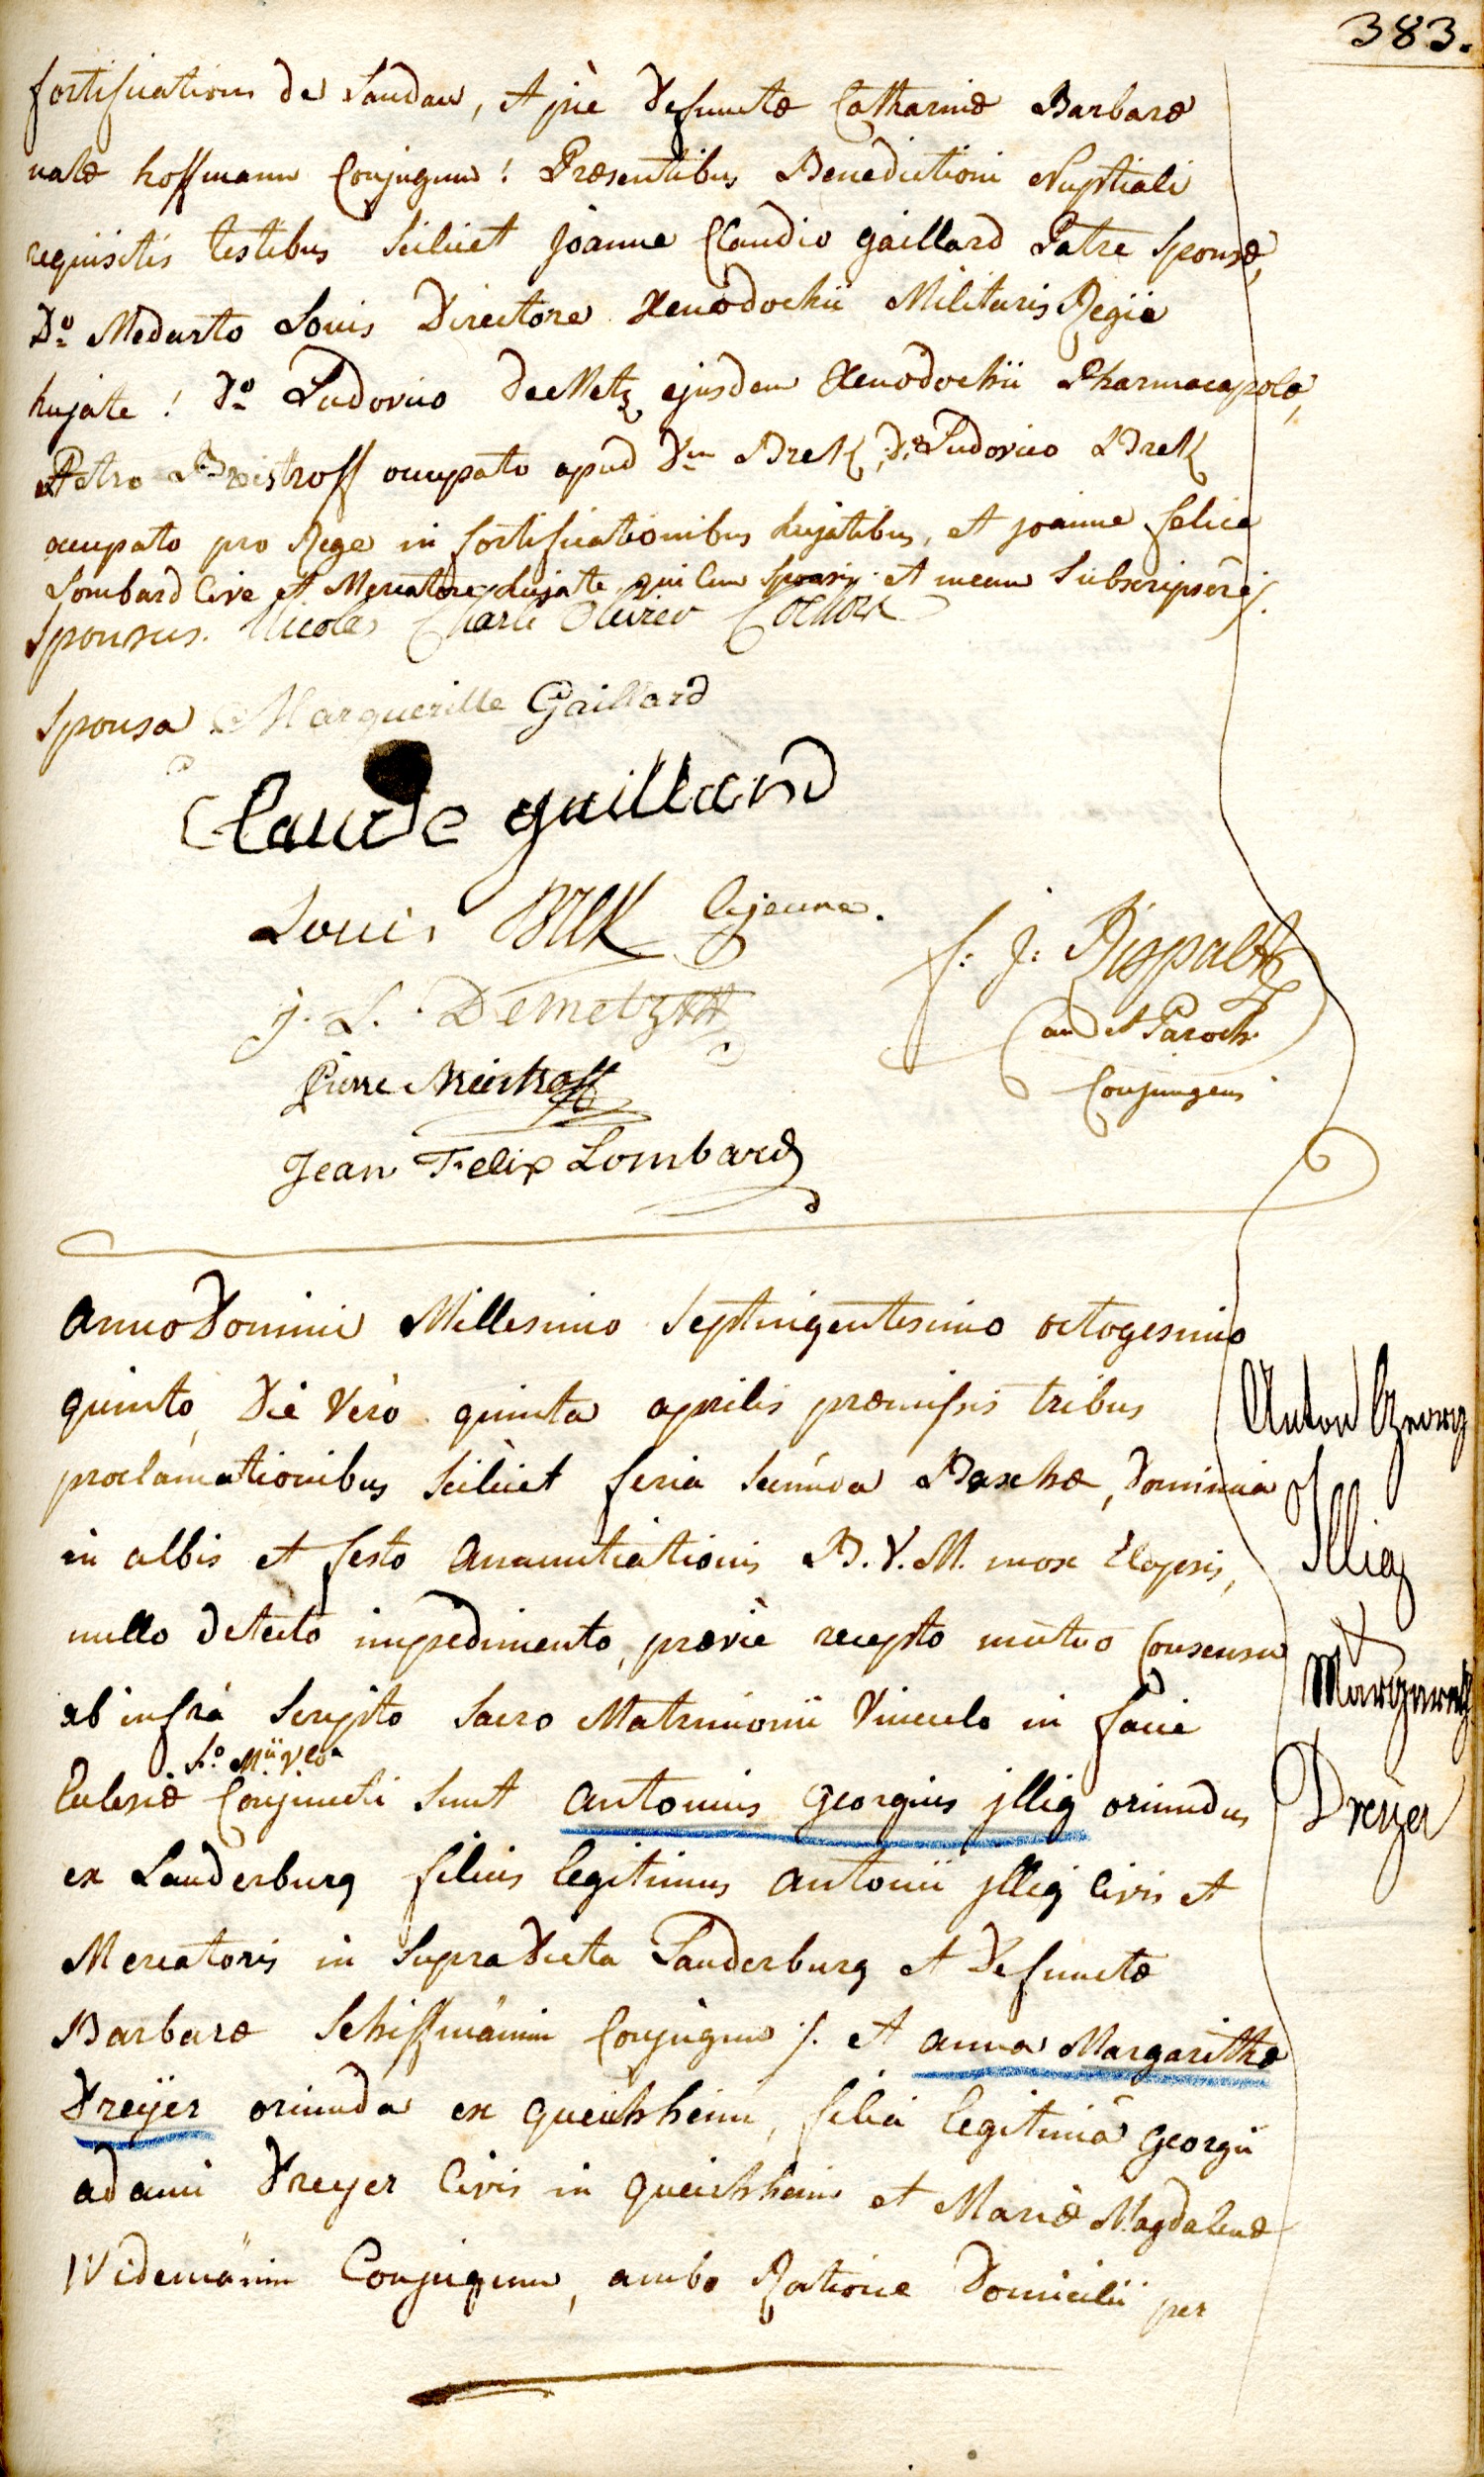 383.
fortificationis de Landau, et piè defunctæ Catharinæ Barbaræ
natæ hoffmann Conjugum! Præsentibus Benedictioni Nuptiali
requisitis testibus scilicet joanne Claudio gaillard Patre Sponsæ,
Do Medardo Louis Directore Xenodochii Militaris Regii
hujate! Do Ludovico deMetz ejusdem Xenodochii Pharmacapolæ,
Petro Breistroff occupato apud Dm Brek, Do Ludovico Brek
occupato pro Rege in fortificationibus hujatibus, et joanne felice
Lombard Cive et Mercatore hujate qui cum Sponsis et mecum Subscripsêre.
Sponsus. Nicolas Charle Olivier
Sponsa Marguerille Gaillard
Claude gaillard
Louis Brek lejeune.
J. L. Demetz
f: j: Rispalt
Can et Paroch
Conjungens
Pierre
Jean Felix Lombard
Anno Domini Millesimo Septingentesimo octogesimo
quinto, Die Verò quinta aprilis præmissis tribus
proclamationibus scilicet feria secunda Paschæ, Dominica
in albis et festo Anuntiationis B.V.M. mox Elapsis,
nullo detecto impedimento, prævie recepto mutuo Consensu
ab infrà Scripto Sacro Matrimonii Vinculo in facie
Ecclesiæ Conjuncti sunt antonius georgius jllig oriundus
ex Lauderburg filius legitimus antonii jllig Civis et
Mercatoris in supradicta Lauderburg et defunctæ
Barbaræ Schiffmännin Conjugum /. et anna Margaritha
Dreÿer oriunda ex queichheim, filia legitima georgii
adami Dreyer Civis in queichheim et Mariæ Magdalenæ
Widemännin Conjugum, ambo Ratione Domicilii per
Anton Georg
Jllig
Margareth
Dreyer